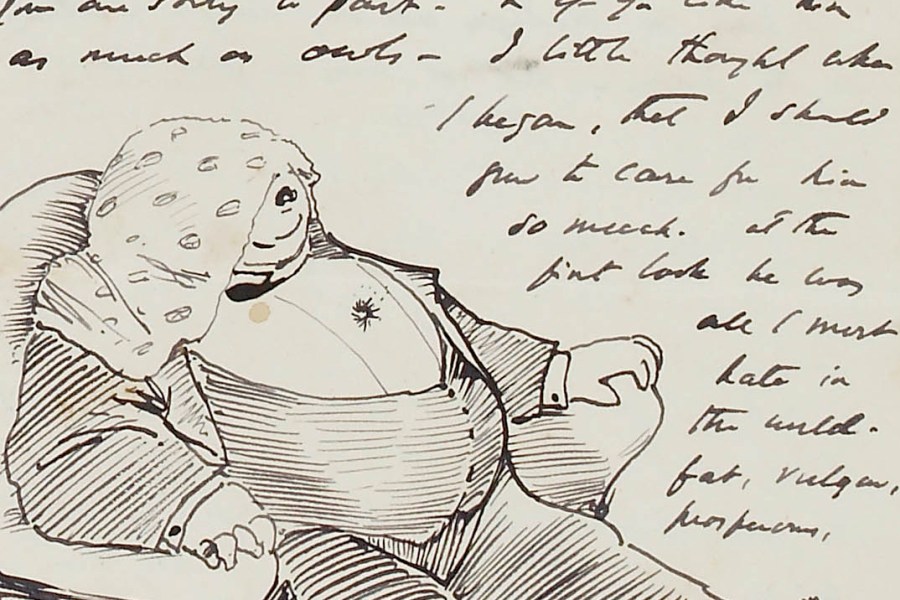 you are sorry to part - & if you like him
as much as owls - I little thought when
I began, that I should
grow to care for him
so much. at the
first look he was
all I most
hate in
the world.
fat, vulgar,
prosperous,